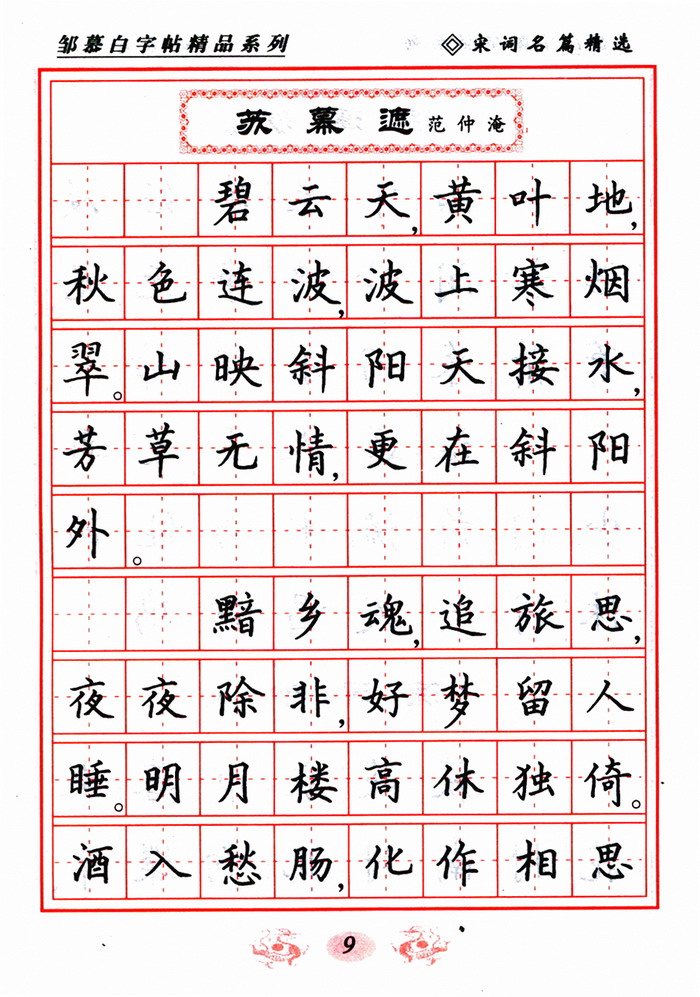 邹慕白字帖精品系列
◈宋词名篇精选
苏幕遮 范仲淹
碧云天，黄叶地，
秋色连波，波上寒烟
翠。山映斜阳天接水，
芳草无情，更在斜阳
外。
黯乡魂，追旅思，
夜夜除非，好梦留人
睡。明月楼高休独倚。
酒入愁肠，化作相思
9